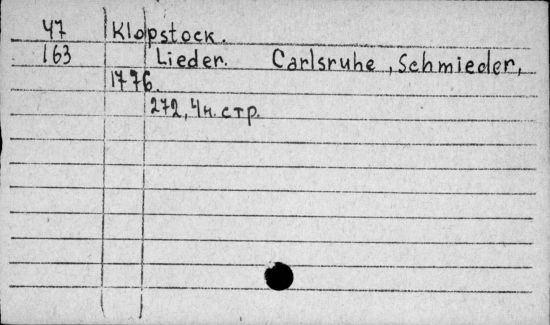 47 Klopstock.
163 Lieder. Carlsruhe, Schmieder,
1776.
272, 4н. стр.